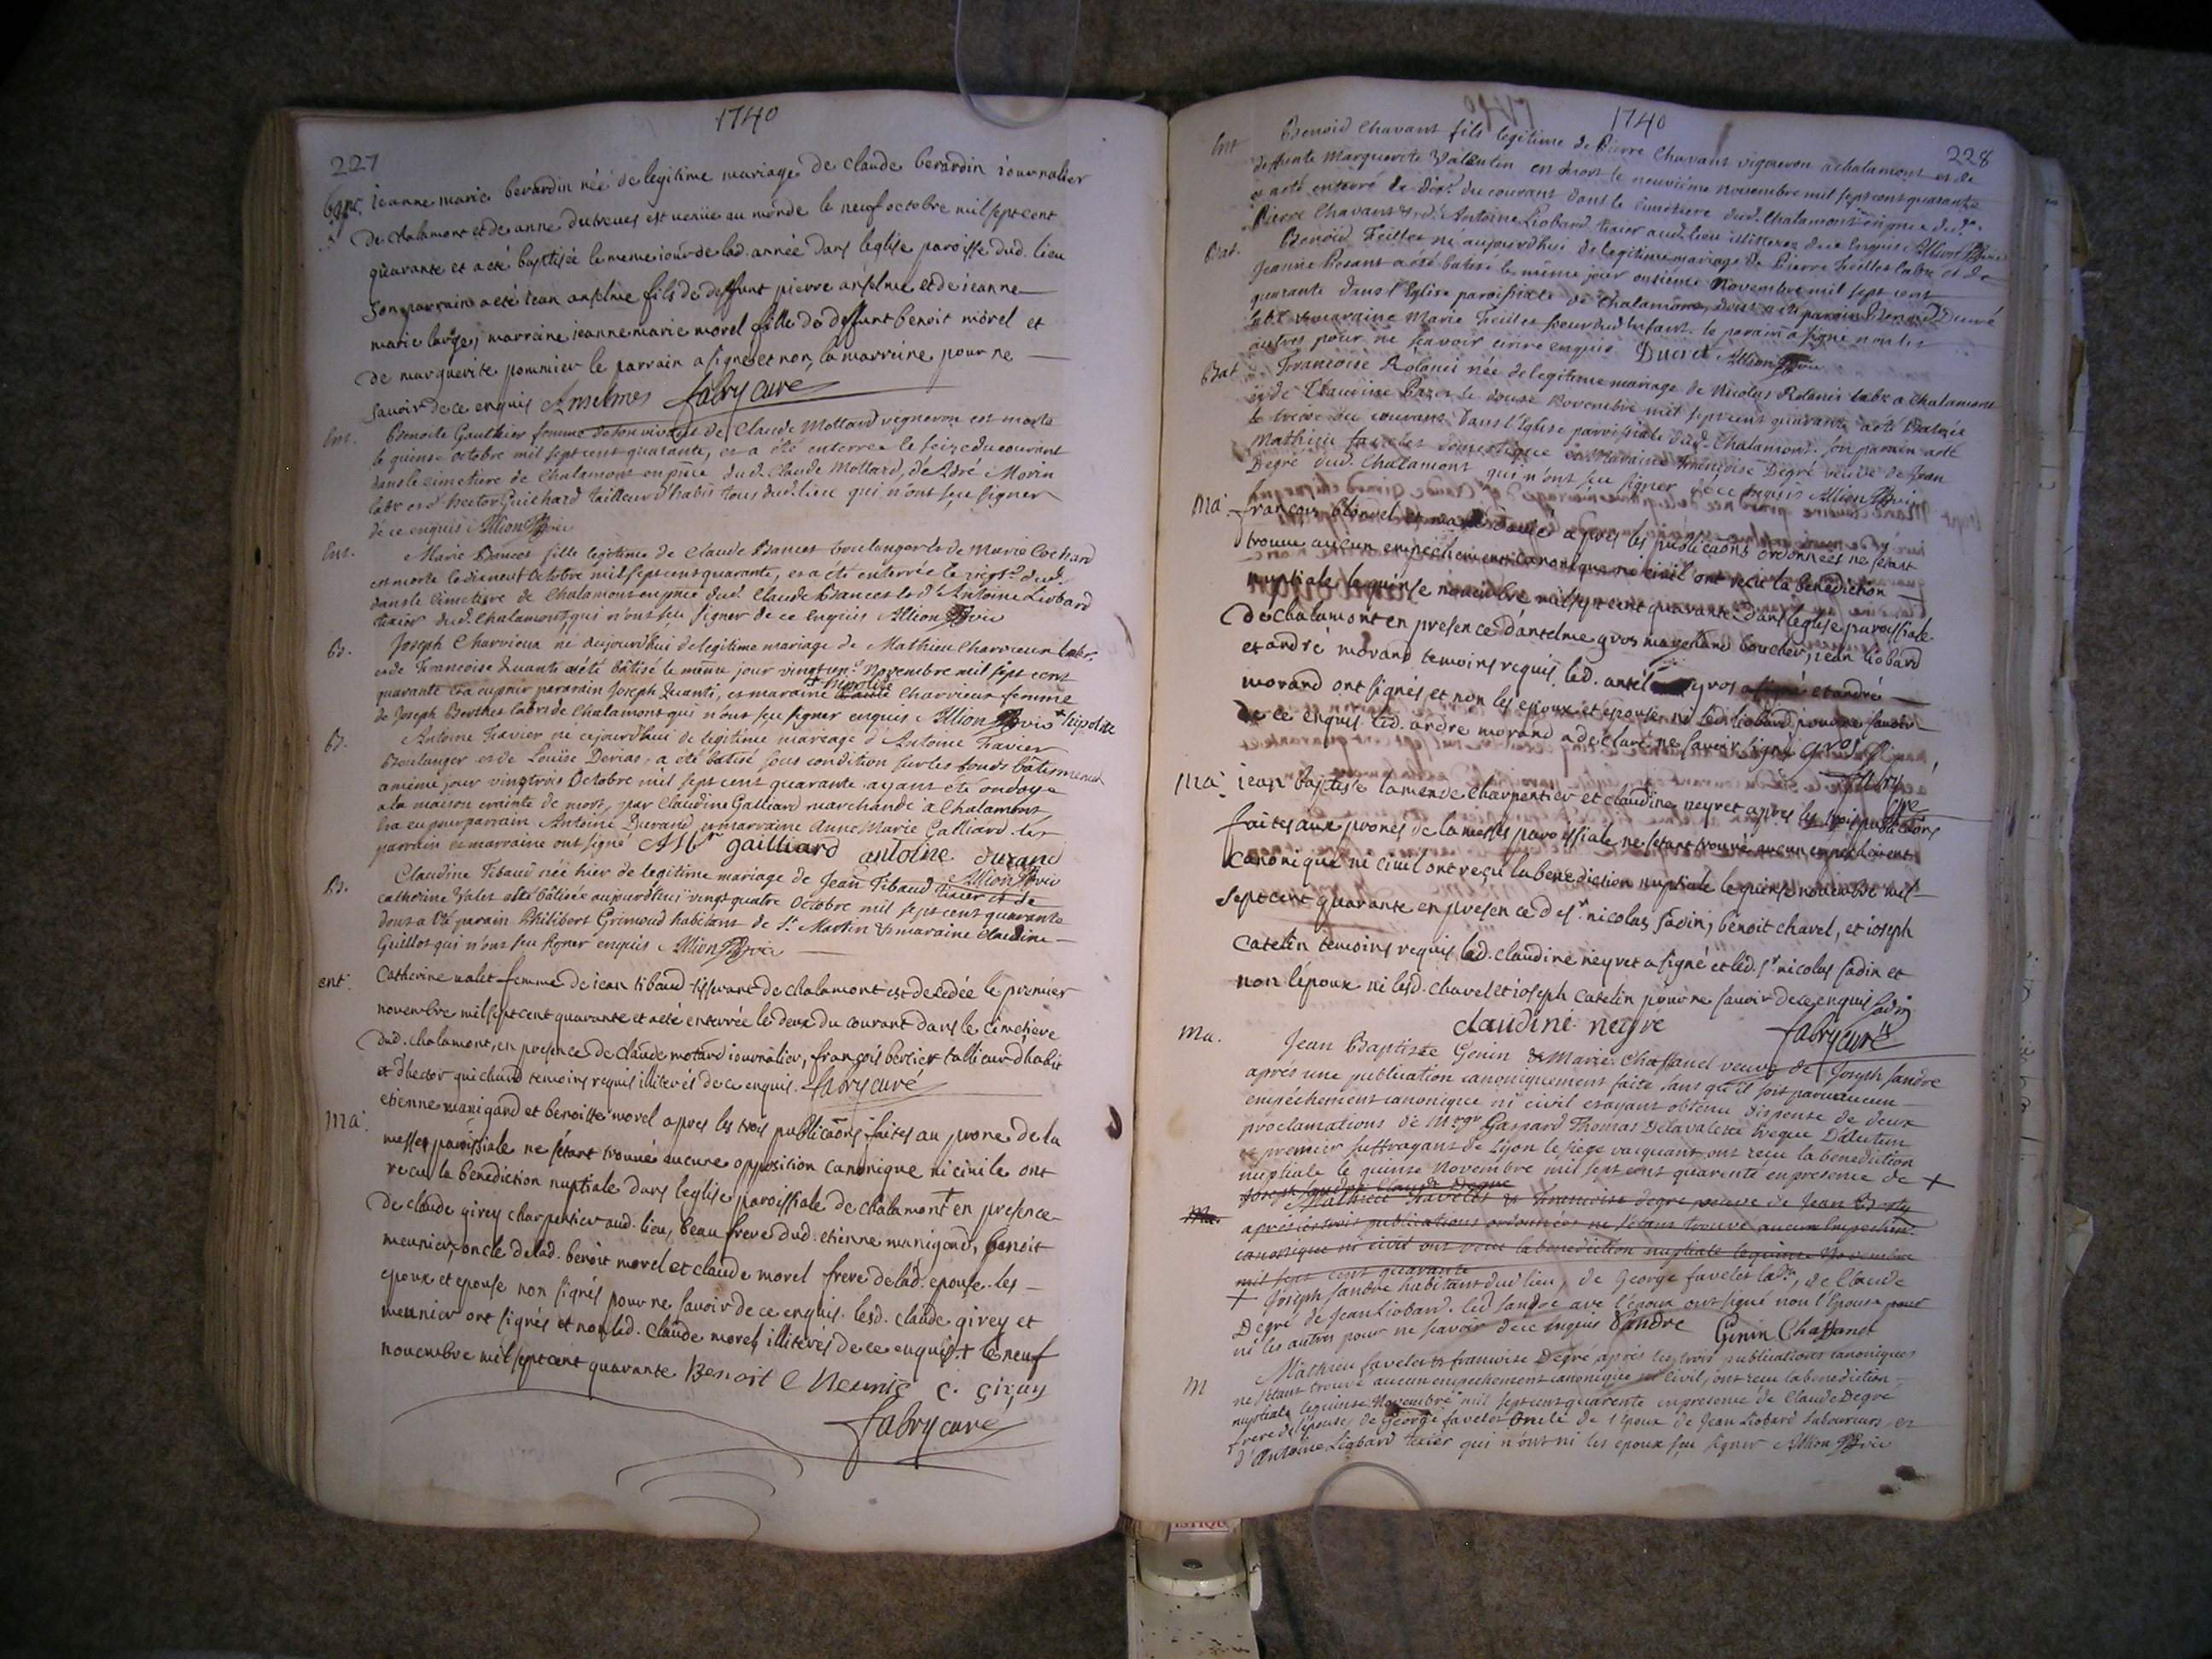 1740
227
bapt. jeanne marie berardin née de legitime mariage de claude berardin iournalier
de chalamont et de anne dutreues est uenüe au monde le neuf octobre mil sept cent
quarante et a eté baptisée le meme iour de lad. année dans leglise paroisse dud. lieu
son parrain a eté iean anselme fils de deffunt pierre anselme et de ieanne
marie large, marraine ieanne marie morel fille de deffunt benoit morel et
de marguerite pommier le parrain a signé et non la marreine pour ne
savoir de ce enquis Anselmes fabry curé
Ent. Benoite Gauthier femme de son vivant de Claude Mottard vigneron est morte
le quinse octobre mil sept cent quarante, et a été enterrée le seize du courant
dans le cimetiere de Chalamont en pnce dud. Claude Mottard, d'Adré Morin
labr et d'hector Guichard tailleur d'habis tous dud. lieu qui n'ont sçu signer
de ce enquis Allion vic
Ent. Marie Bances fille legitime de Claude Bances boulanger & de Marie Cochard
est morte le dixneuf octobre mil sept cent quarante, et a été enterrée le vingt dud.
dans le Cimetiere de Chalamont en pnce dud. Claude Bances & d'Antoine Liobard
texier dud. Chalamont qui n'ont sçu signer de ce enquis Allion vic
B. Joseph Charvieux né aujourdhui de legitime mariage de Mathieu Charvieux labr.
et de Francoise Quanti a été bâtisé le même jour vingt un Novembre mil sept cent
quarante et a eu pour parrain Joseph Quanti, et maraine Charvieux femme
de Joseph Berthet labr de Chalamont qui n'ont sçu signer enquis Allion vic + hipolite
B. Antoine Xavier né cejourdhui de legitime mariage d'Antoine Xavier
Boulanger et de Loüise Derias, a été batisé sous condition sur les fonds bâtismeaux
a même jour vingtrois Octobre mil sept cent quarante ayant été ondoyé
a la maison crainte de mort, par Claudine Galliard marchande a Chalamont
Il a eu pour parrain Antoine Durand et marraine Anne Marie Galliard. les
parrain et marraine ont signé AM gailliard antoine durand
Allion vic
B. Claudine Tibaud née hier de legitime mariage de Jean Tibaud tixier et de
catherine Valet a été bâtisée aujourdhui vingt quatre Octobre mil sept cent quarante
dont a été parain Philibert Grimoud habitant de St Martin & maraine Claudine
Guillot qui n'ont sçu signer enquis Allion vic
ent. Catherine ualet femme de iean tibaud tisserant de chalamont est decedée le premier
nouembre mil sept cent quarante et a eté enterrée le deux du courant dans le cimetiere
dud. chalamont, en presence de claude motard iournalier, françois bercier tallieur dhabit
et dhector guichard temoins requis illiterés de ce enquis. fabry curé
Ma. etienne manigand et benoitte morel apres les trois publicaõns faites au prone de la
messe paroissiale ne s'étant trouvé aucune opposition canonique ni ciuile ont
recu la benediction nuptiale dans leglise paroissiale de chalamont + en presence
de claude girey charpentier aud. lieu, beau frere dud. etienne manigand, benoit
meunier oncle de lad. benoit morel et claude morel frere de lad. epouse. les
epoux et epouse non signés pour ne savoir de ce enquis. lesd. claude girey et
meunier ont signés et non led. claude morel illiterés de ce enquis + le neuf
nouembre mil sept cent quarante Benoit Meunié C. girey
fabry curé
1740
228
Ent Benoid Chavant fils legitime de Pierre Chavant vigneron a chalamont et de
deffunte Marguerite Valentin est mort le neuviéme novembre mil sept cent quarante
et a été enterré le dix. du courant dans le Cimetiere dud. Chalamont en pnce dud.
Pierre Chavant & d'Antoine Liobard texier aud. lieu illiterez de ce enquis Allion vic
Bat. Benoid Feillet né aujourdhui de legitime mariage de Pierre Feillet labr et de
Jeanne Rosant a été batisé le même jour onsiéme Novembre mil sept cent
quarante dans l'Eglise paroissiale de Chalamont, dont a été parain Benoid Ducré
labr & maraine Marie Feillet soeur dud enfant. le parain a signé non les
autres pour ne sçavoir écrire enquis Ducret Allion vic
Bat Francoise Rolanis née de legitime mariage de Nicolas Rolanis labr a Chalamont
et de Claudine Bazet le douse Novembre mil sept cent quarante a été Batisée
le treise du courant dans l'Eglise paroissiale dud. Chalamont. son parain a été
Mathieu favelet domestique et Maraine Françoise Degré veuve de Jean
Degré dud. Chalamont qui n'ont sçu signer de ce enquis Allion vic
Ma. françois blondel et apres les publicaõns ordonnées ne s'étant
trouué aucun empechement canonique ni ciuil ont recu la benediction
nuptiale le quinse nouembre mil sept cent quarante dans leglise paroissiale
de chalamont en presence dantelme gros marchand boucher, iean liobard
et andré morand temoins requis led. antel gros a signé et andré
morand ont signés et non les epoux et epouse ni led. liobard pour ne savoir
de ce enquis led. andre morand a declaré ne savoir signé gros
fabry curé
Ma. iean baptiste lamende charpentier et claudine neyret apres les trois publicaõns
faites aux prones de la messe paroissiale ne s'etant trouué aucun empechement
canonique ni ciuil ont reçu la benediction nuptiale le quinse nouembre mil
sept cent quarante en presence de sr nicolas sadin, benoit chavel, et ioseph
catelin temoins requis lad. claudine neyret a signé et led. sr nicolas sadin et
non l'époux ni lesd. chavel et ioseph catelin pour ne sauoir de ce enquis Sadin
claudine neyré fabry curé
Ma. Jean Baptiste Genin & Marie Chaffanel veuve de Joseph Sandre
aprés une publication canoniquement faite sans qu'il soit parvenu aucun
empêchement canonique ni civil et ayant obtenu dispense de deux
proclamations de Mrgr Gaspard Thomas Delavalette Eveque D'Autun
et premier suffragant de Lyon le siege vacquant, ont recu la benediction
nuptiale le quinse Novembre mil sept cent quarente en presence de +
Joseph Sandre Claude Degré
Ma. Mathieu Favelet & Francoise Degré veuve de Jean
aprés les trois publications ordonnées ne s'etant trouvé aucun Empechem.
canonique ni civil ont recu la benediction nuptiale le quinse Novembre
mil sept cent quarante
+ Joseph Sandre habitant dud lieu, de George favelet labr, de Claude
Degré de Jean Liobard. led sandre avec l'epoux ont signé non l'Epouse
ni les autres pour ne scavoir de ce enquis Sandre Genin Chaffanel
M Mathieu favelet & francoise Degré aprés les trois publications canoniques
ne s'étant trouvé aucun empechement canonique ni Civil, ont recu la benediction
nuptiale le quinse Novembre mil sept cent quarente en presence de Claude Degré
frere de l'épouse, de George favelet Oncle de l'epoux de Jean Liobard laboureurs, et
d'Antoine Liobard texier qui n'ont ni les epoux sçu signer Allion vic